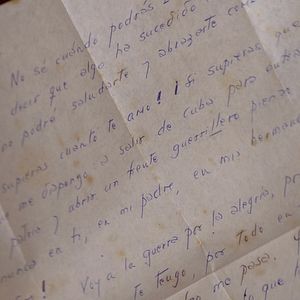 No sé cuándo podrás
decir que algo ha sucedido
no podré saludarte y abrazarte como
¡Si supieras que
supieras cuanto te amo!
me dispongo a salir de Cuba para
patria y abrir un frente guerrillero pienso
nunca en ti, en mi padre, en mis hermanos
Voy a la guerra por la alegría, por
te tengo, por todo en
me pasa.
que